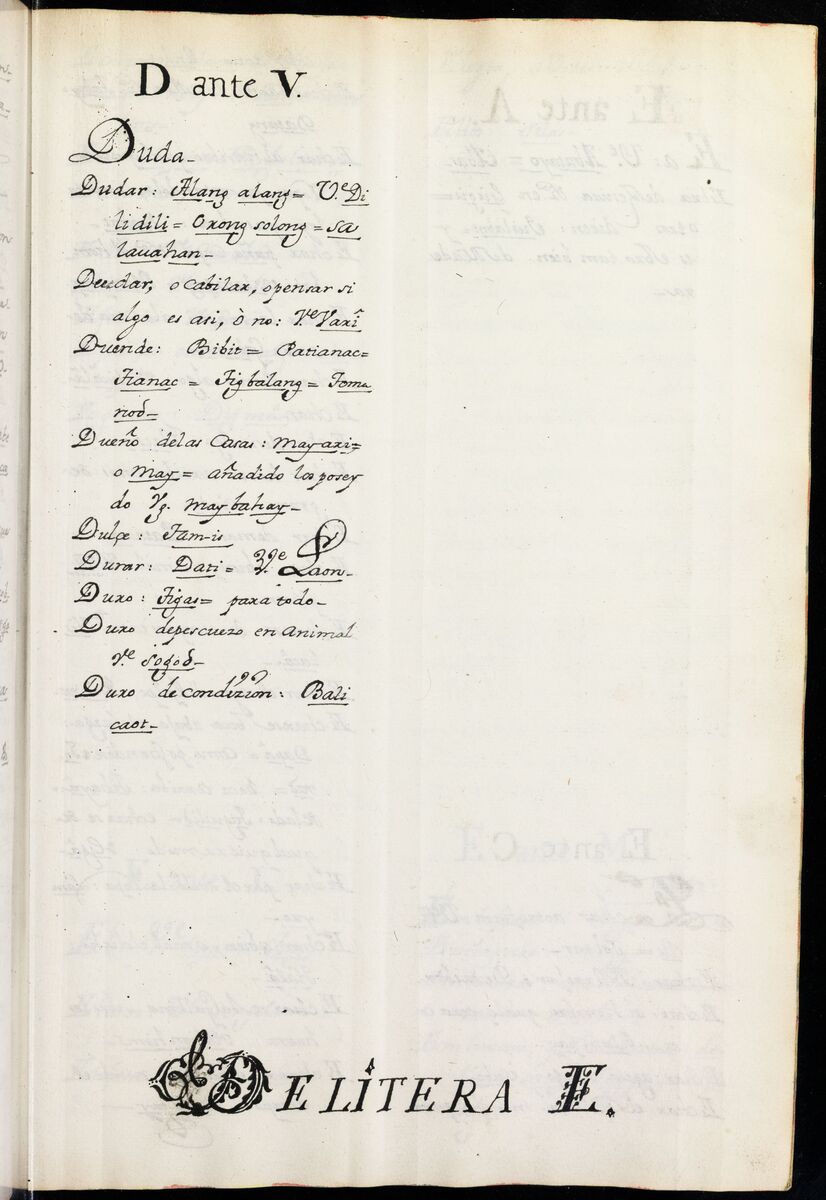 D ante V.
Duda–
Dudar: Alang alang= V.e Di
lidili= Orong solong= sa
lauahan–
Dudar, o Cabilar, o pensar si
algo es asi, ò no: V.e Vari
Duende: Bibit= Patianac=
Tianac= Tigbalang= Toma
nod–
Dueño delas Casas: may ari=
o May= añadido lo posey
do Vg. may bahay–
Dulçe: Tam-is
Durar: Dati= V.e Laon–
Duro: Tigas= para todo–
Duro depescuezo en animal
V.e sogod–
Duro de condizion: Bali
caot–
DE LITERA E.